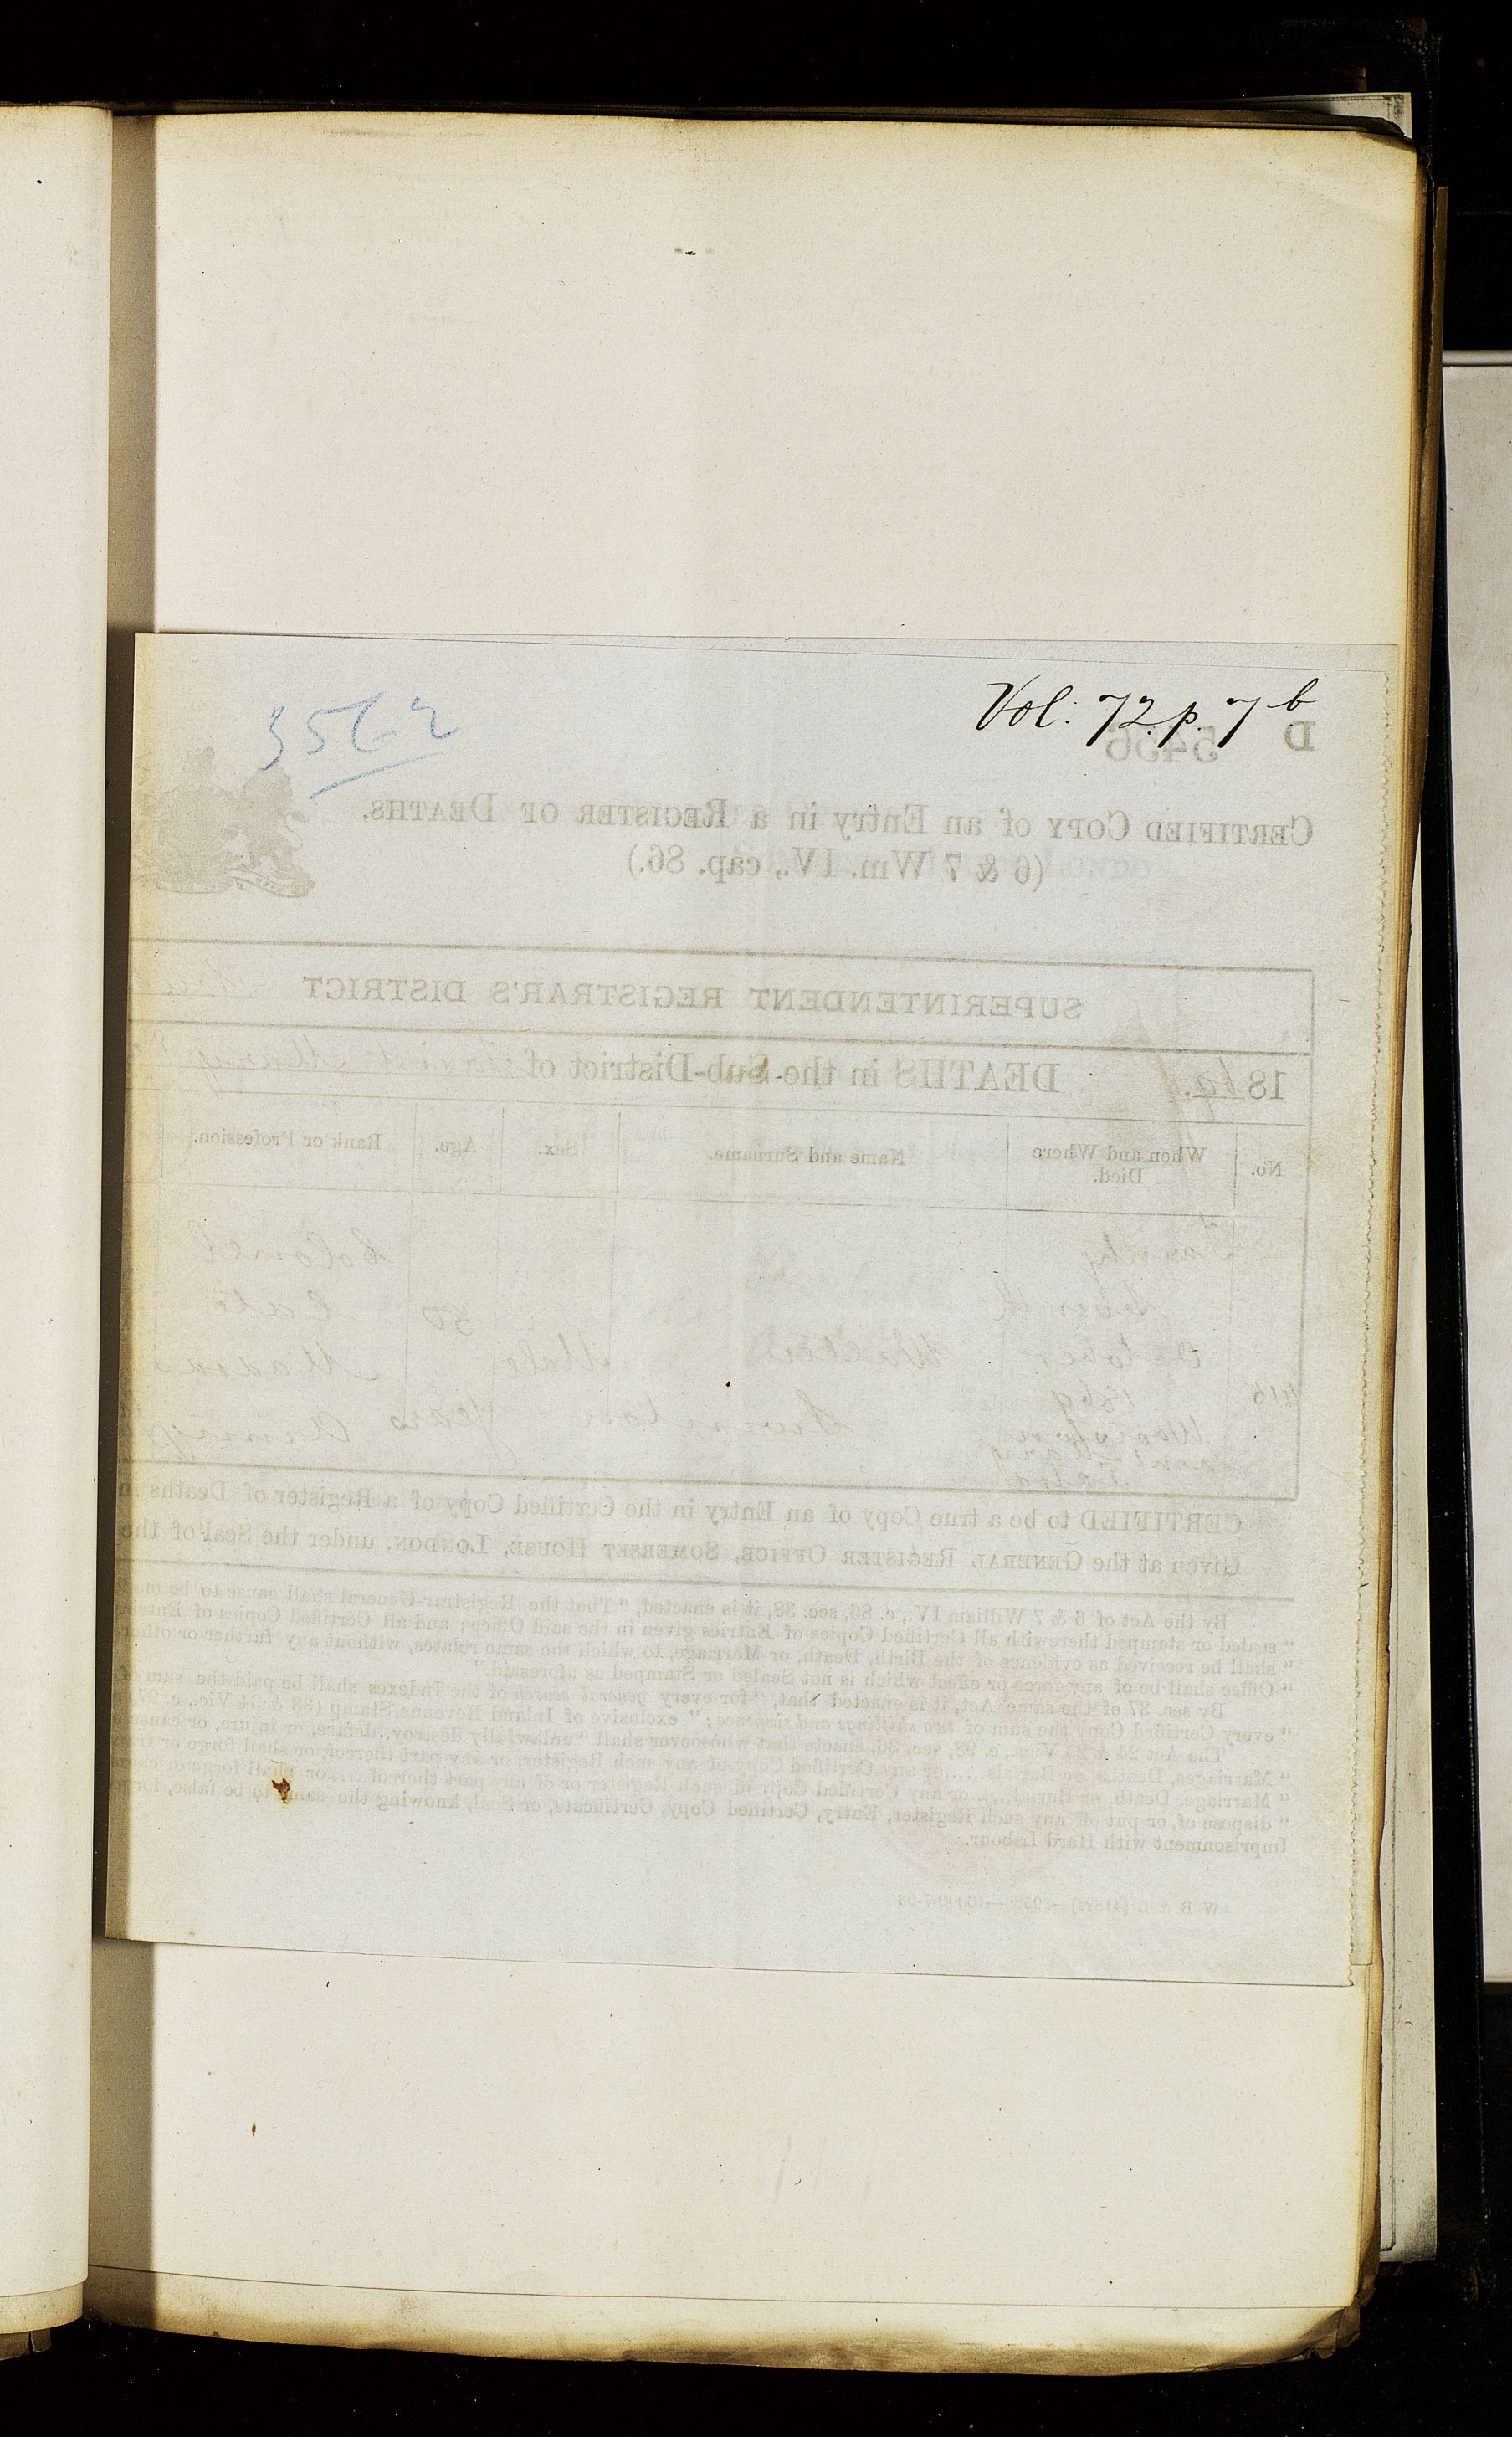 Vol: 72. p. 7 b
D 5456
CERTIFIED COPY of an Entry in a REGISTER OF DEATHS.
(6 & 7 Wm. IV., cap. 86.)
SUPERINTENDENT REGISTRAR'S DISTRICT
1869. DEATHS in the Sub-District of Saint Mary
No. When and Where Died. Name and Surname. Sex. Age. Rank or Profession.
Twenty Colonel
Seventh 50 late
October Walter Male Madras
415 1869 Swinton Years Army
Woolston
Saint Mary
CERTIFIED to be a true Copy of an Entry in the Certified Copy of a Register of Deaths in
Given at the GENERAL REGISTER OFFICE, SOMERSET HOUSE, LONDON, under the Seal of the
By the Act of 6 & 7 William IV., c. 86, sec. 38, it is enacted, "That the Registrar-General shall cause to be
"sealed or stamped therewith all Certified Copies of Entries given in the said Office; and all Certified Copies of Entries
"shall be received as evidence of the Birth, Death, or Marriage, to which the same relates, without any further or other
"Office shall be of any force or effect which is not Sealed or Stamped as aforesaid."
By sec. 37 of the same Act, it is enacted that, "for every general search of the Indexes shall be paid the sum of
"every Certified Copy the sum of two shillings and sixpence;" exclusive of Inland Revenue Stamp (33 & 34 Vic., c. 97
The Act 24 & 25 Vic., c. 98, sec. 36, enacts that whosoever shall "unlawfully destroy, deface, or injure, or cause
"Marriages, Deaths, or Burials......or any Certified Copy of any such Register, or any part thereof, or shall forge or
"Marriage, Death, or Burial......or any Certified Copy of such Register or of any part thereof......or shall forge or
"dispose of, or put off any such Register, Entry, Certified Copy, Certificate, or Seal, knowing the same to be false,
Imprisonment with Hard Labour.